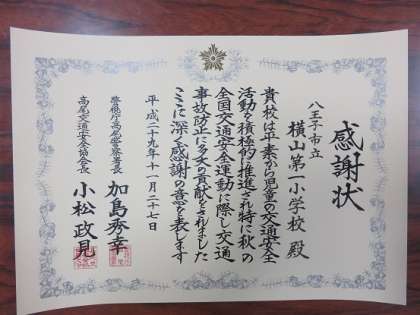 感謝状
八王子市立
横山第一小学校 殿
貴校は平素から児童の交通安全
活動を積極的に推進され特に秋の
全国交通安全運動に際し交通
事故防止に多大の貢献をされました
ここに深く感謝の意を表します
平成二十九年十一月二十七日
警視庁高尾警察署長 加島秀幸
高尾交通安全協会長 小松政見